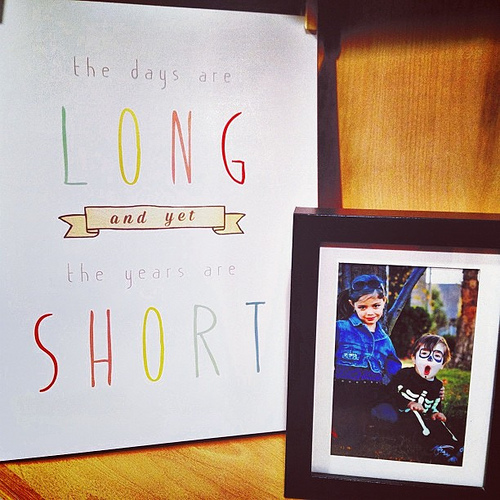 the days are
LONG
and yet
the years are
SHORT